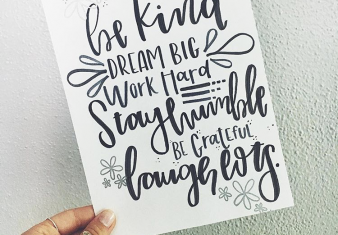 be kind
DREAM BIG
Work Hard
Stay humble
BE Grateful
laugh lots.